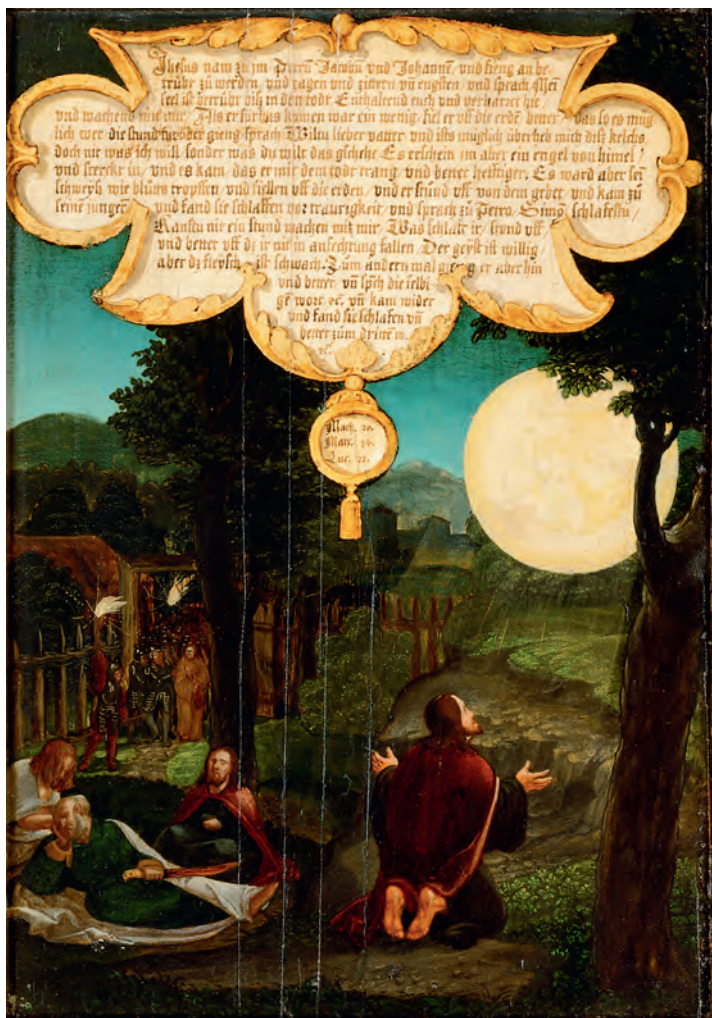 Jhesus nam zu jm Petrū Jacobū vnd Johannē, vnd fieng an be
trübt zů werden, vnd zagen vnd zittern vñ engsten, vnd sprach
seel ist betrübt biß in den todt Enthaltend euch vnd verharret hie
vnd wachend mit mir. Als er fürbas komen war ein wenig, fiel er vff die erdē bettet, das so es müg
lich wer die stund fürvber gieng sprach lieber vatter vnd ists müglich überheb mich diß kelchs,
doch nit was ich will sonder was du wilt das geschehe Es erschein im aber ein engel von himel,
vnd sterckt in, vnd es kam, das er mit dem todt rang, vnd bettet hefftiger. Es ward aber sei
schweyß wie blůts tropffen, vnd fiellen vff die erden, vnd er stůnd vff von dem gebet, vnd kam zů
seinē jungern vnd fand sie schlaffen vor traurigkeit, vnd sprach zů Petro, Simō schlafestu,
Kanstu nit ein stund wachen mit mir, Was schlaft ir, stond vff
vnd bettet vff dz ir nit in anfechtung fallen Der geyst ist willig
aber dz fleysch ist schwach. Zum andern mal gieng er aber hin
vnd bettet vñ sprch die selbi
gē wort ꝛc. vñ kam wider
vnd fand sie schlafen vñ
bettet zům dritē m.
Math. 26.
Marc. 14.
Luc. 22.